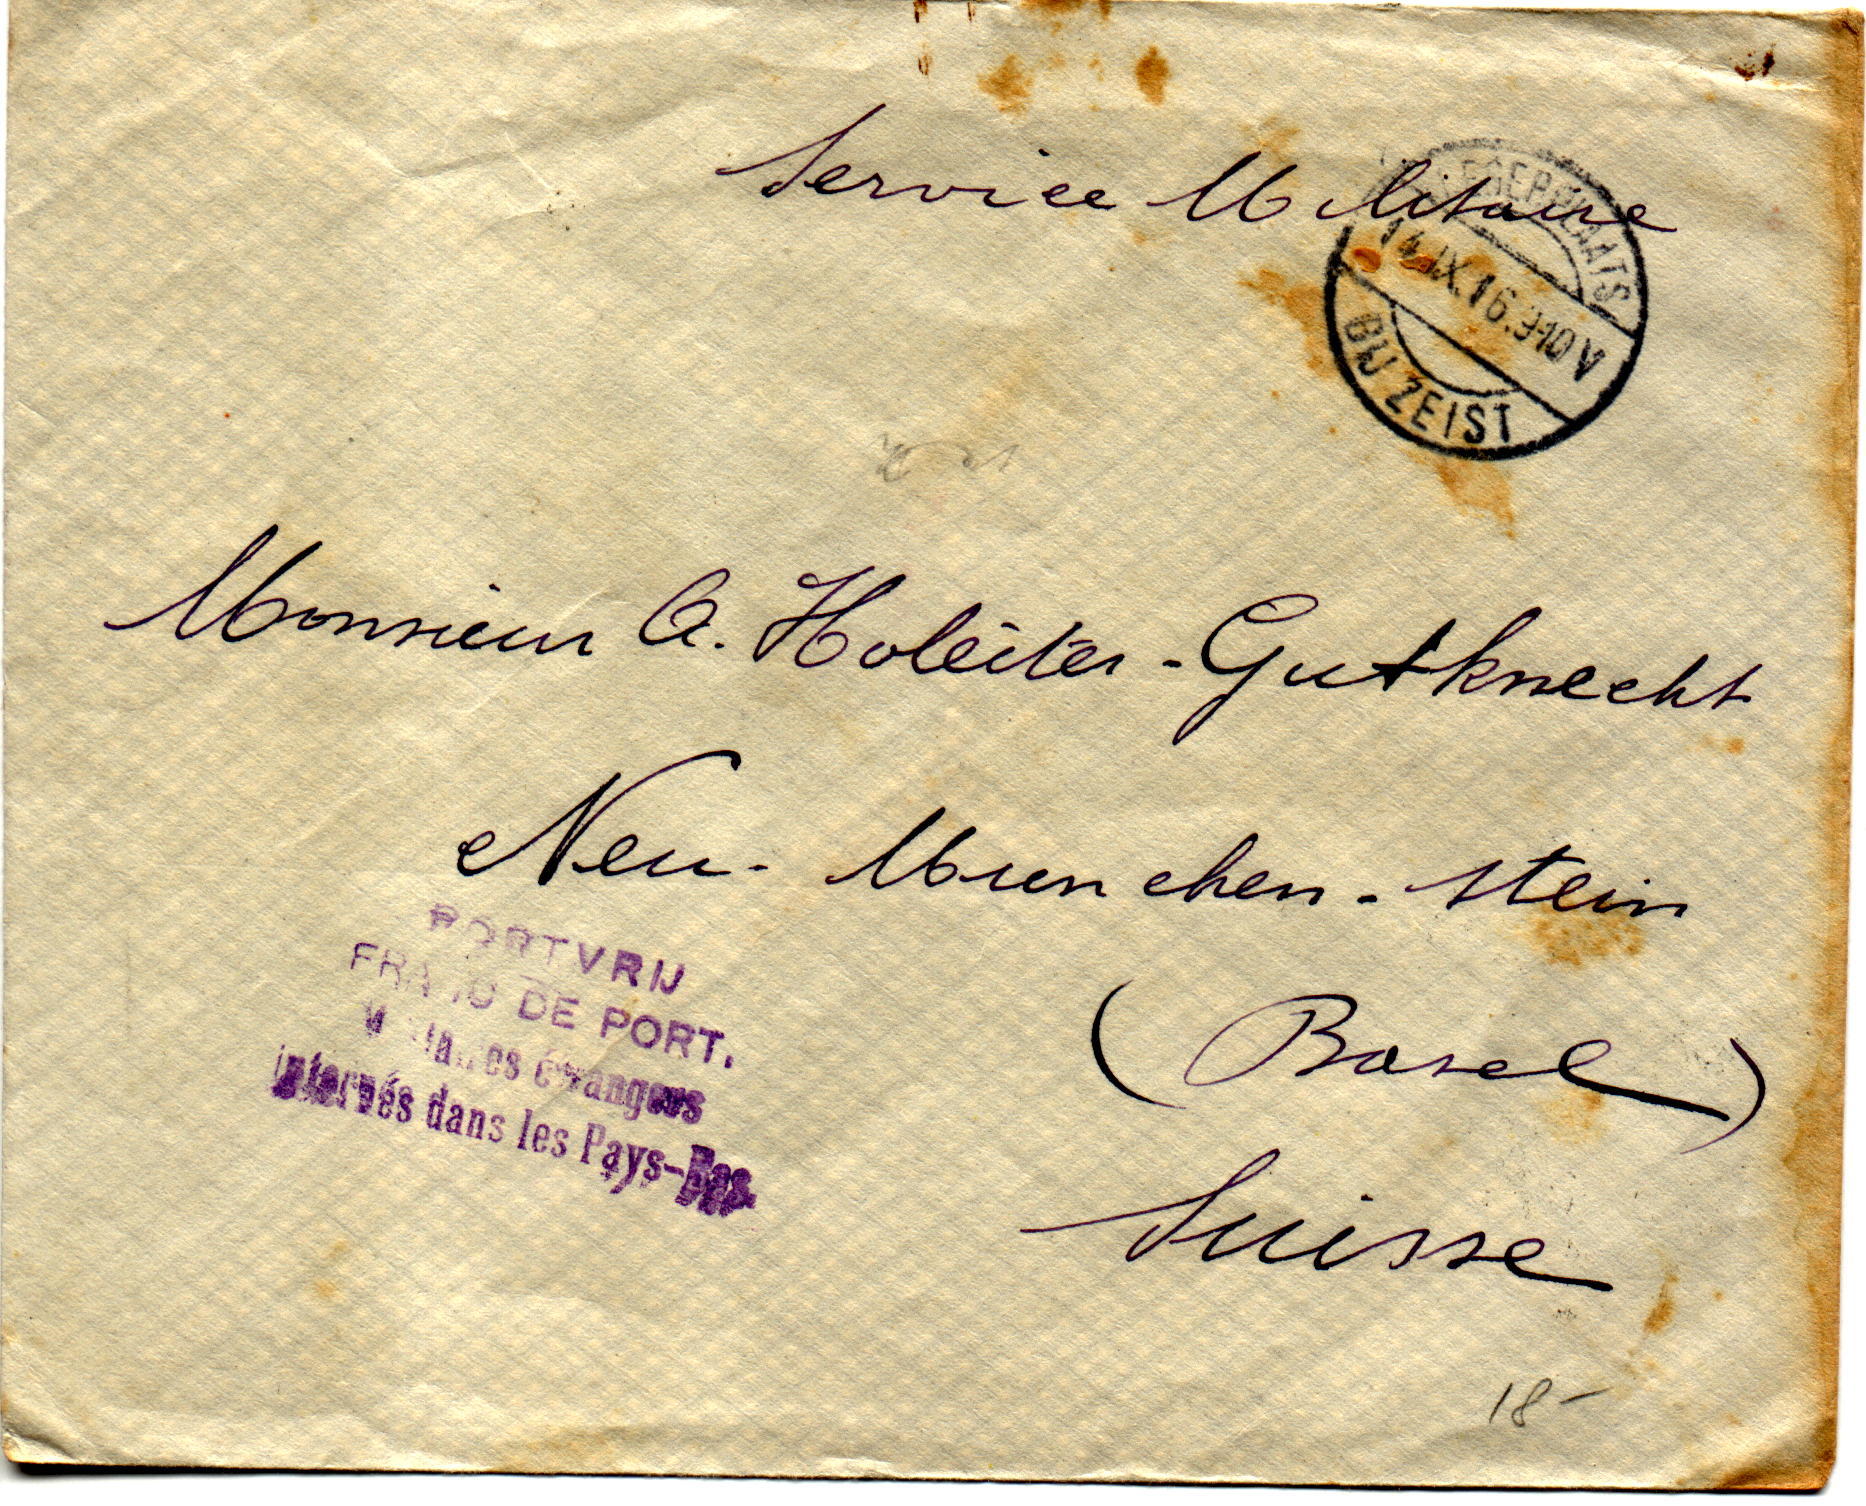 Service Militaire
LEGERPLAATS
14.IX.16.9-10V
BIJ ZEIST
Monsieur A. Holeiter-Gutknecht
Neu-Munchen-stein
(Basel)
Suisse
PORTVRIJ
FRANC DE PORT.
Militaires étrangers
internés dans les Pays-Bas.
18-